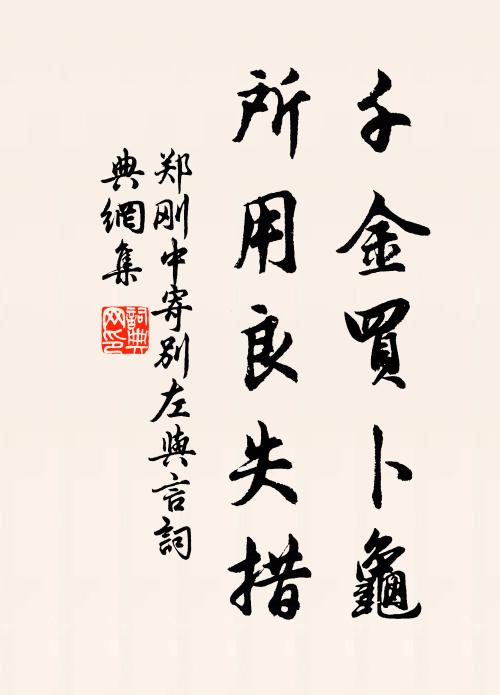 千金買卜龜
所用良失措
郑刚中寄别左與言詞
典網集
詞典
网印